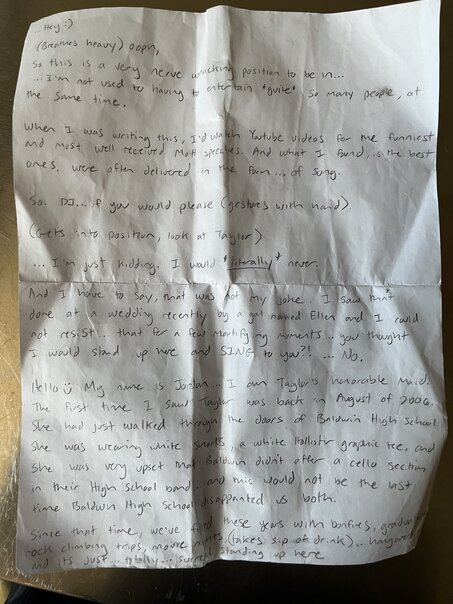 ...Hey :)
(Breathes heavy) ooph,
So this is a very nerve wracking position to be in...
...I'm not used to having to entertain *quite* so many people, at
the same time.
When I was writing this, I'd watch Youtube videos for the funniest
and most well received MOH speeches. And what I found, is the best
ones, were often delivered in the form... of song.
So. DJ... if you would please (gestures with hand)
(Gets into position, look at Taylor)
...I'm just kidding. I would *literally* never.
And I have to say, that was not my joke. I saw that
done at a wedding recently by a gal named Ellen and I could
not resist... that for a few mortifying moments... you thought
I would stand up here and SING to you?! ... No.
Hello :) My name is Jordan... I am Taylor's honorable Maid.
The first time I saw Taylor was back in August of 2006.
She had just walked through the doors of Baldwin High School.
She was wearing white shorts, a white Hollister graphic tee, and
she was very upset that Baldwin didn't offer a cello section
in their High School band... and this would not be the last
time Baldwin High School disappointed us both.
Since that time, we've filled these years with bonfires,
rock climbing trips, movie nights (takes sip of drink)... hangovers
and its just... totally... surreal standing up here